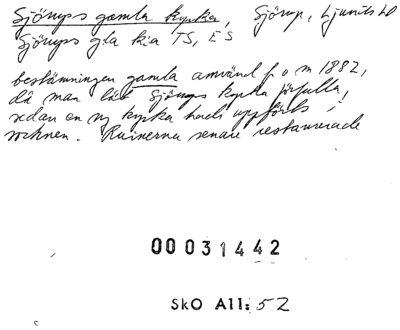 Sjörups gamla kyrka, Sjörup, Ljunits hd
Sjörups gla k:a TS, ES
bestämningen gamla använd fr o m 1882,
då man lät Sjörups kyrka förfalla,
sedan en ny kyrka hade uppförts i
socknen. Ruinerna senare restaurerade
00031442
SkO All: 52